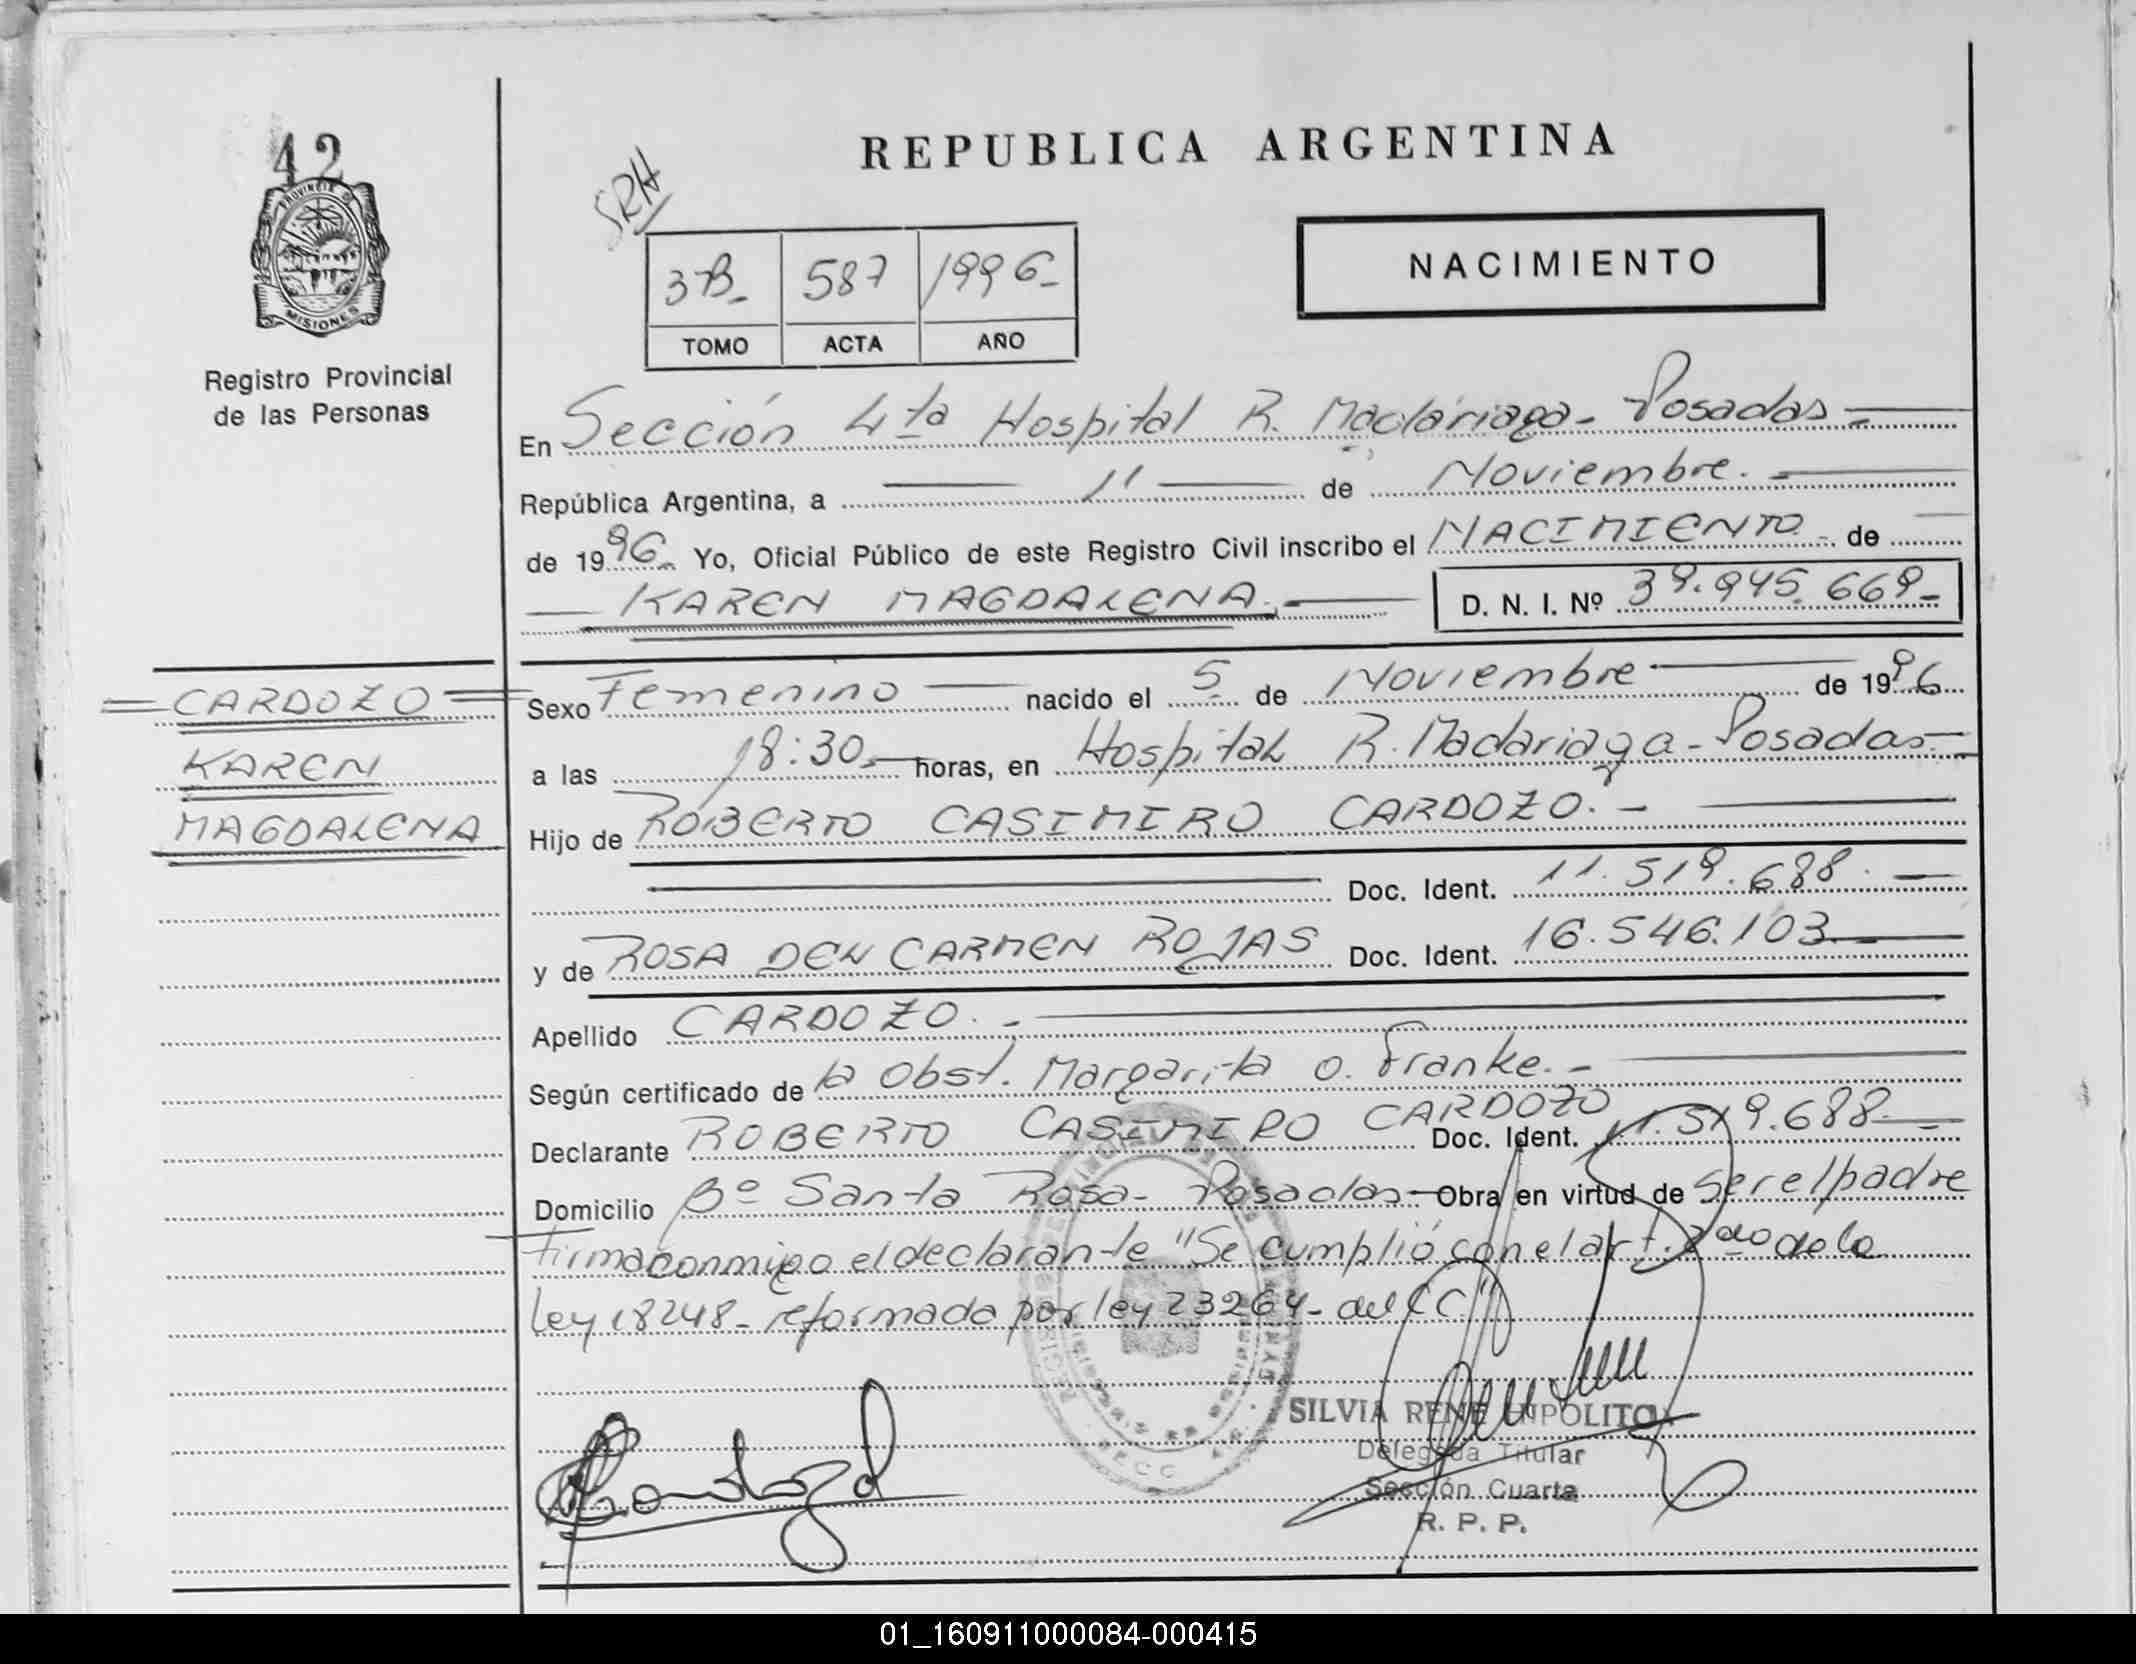 42
PROVINCIA DE
MISIONES
Registro Provincial
de las Personas
REPUBLICA ARGENTINA
SRH
3B_ 587 1996_
TOMO ACTA AÑO
NACIMIENTO
En Sección 4ta Hospital R. Madariaga - Posadas -
República Argentina, a 11 de Noviembre.
de 1996_ Yo, Oficial Público de este Registro Civil inscribo el NACIMIENTO - de
KAREN MAGDALENA. D. N. I. Nº 39.945.669_
CARDOZO
KAREN
MAGDALENA
Sexo Femenino nacido el 5 de Noviembre de 1996
a las 18:30 horas, en Hospital R. Madariaga - Posadas
Hijo de ROBERTO CASIMIRO CARDOZO. -
Doc. Ident. 11.519.688. -
y de ROSA DEL CARMEN ROJAS Doc. Ident. 16.546.103
Apellido CARDOZO. -
Según certificado de la Obst. Margarita O. Franke. -
Declarante ROBERTO CASIMIRO CARDOZO Doc. Ident. 11.519.688
Domicilio Bº Santa Rosa - Posadas Obra en virtud de ser el padre
firma conmigo el declarante "Se cumplió con el art. 2do de la
ley 18248 - reformada por ley 23264 - del C.C."
SILVIA RENE HIPOLITO
Delegada Titular
Sección Cuarta
R. P. P.
01_160911000084-000415